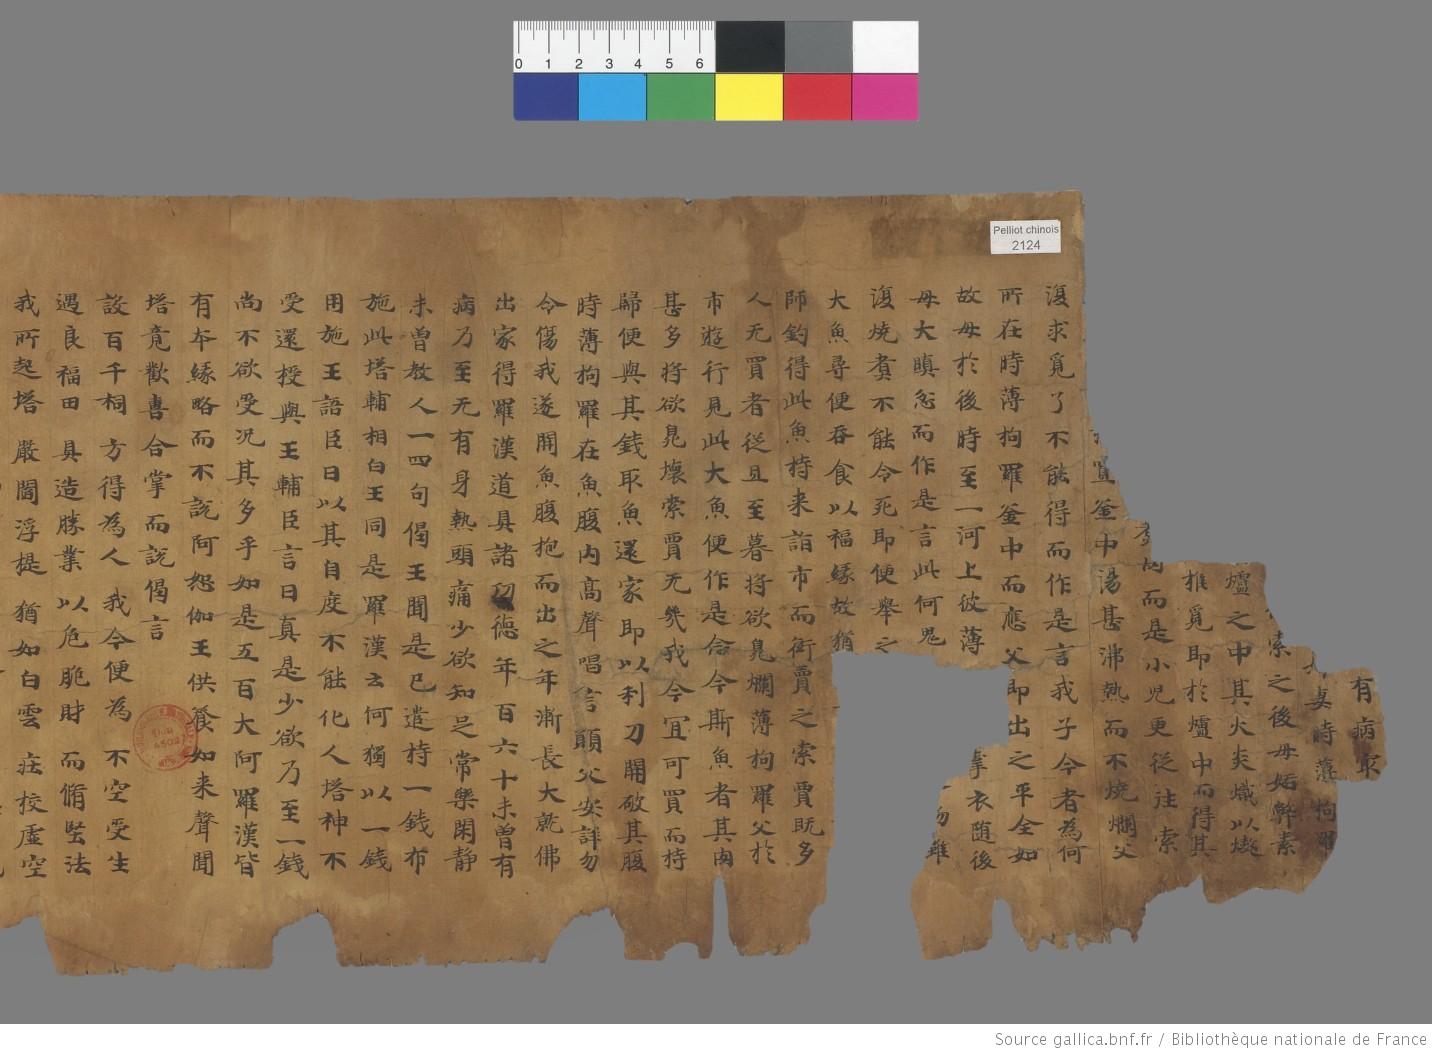 0 1 2 3 4 5 6
Pelliot chinois
2124
有病取
妻時薄拘羅
索之後母妬弊素
爐之中其火炎熾以燒
推覓即於爐中而得其
而是小兒更従往索
置釜中湯甚沸熱而不燒爛父
復求覓了不能得而作是言我子今者為何
所在時薄拘羅釜中而應父即出之平全如
故母於後時至一河上彼薄
牽衣随後
母大瞋忿而作是言此何鬼
難
復燒煑不能令死即便舉之
大魚尋便吞食以福緣故猶
師釣得此魚持来詣市而衒賣之索賈既多
人无買者従旦至暮将欲臭爛薄拘羅父於
市遊行見此大魚便作是念今斯魚者其肉
甚多将欲臭壞索賈无幾我今冝可買而持
歸便與其錢取魚還家即以利刀開破其腹
時薄拘羅在魚腹内髙聲唱言願父安詳勿
令傷我遂開魚腹抱而出之年漸長大就佛
出家得羅漢道具諸功德年百六十未曾有
病乃至无有身熱頭痛少欲知足常樂閑静
未曾教人一四句偈王聞是已遣持一錢布
施此塔輔相白王同是羅漢云何獨以一錢
用施王語臣曰以其自度不能化人塔神不
受還授與王輔臣言曰真是少欲乃至一錢
尚不欲受況其多乎如是五百大阿羅漢皆
有本緣略而不説阿恕伽王供養如来聲聞
塔竟歡喜合掌而説偈言
設百千祠 方得為人 我今便為 不空受生
遇良福田 具造勝業 以危脆財 而脩堅法
我所起塔 嚴閻浮提 猶如白雲 莊校虛空
Source gallica.bnf.fr / Bibliothèque nationale de France